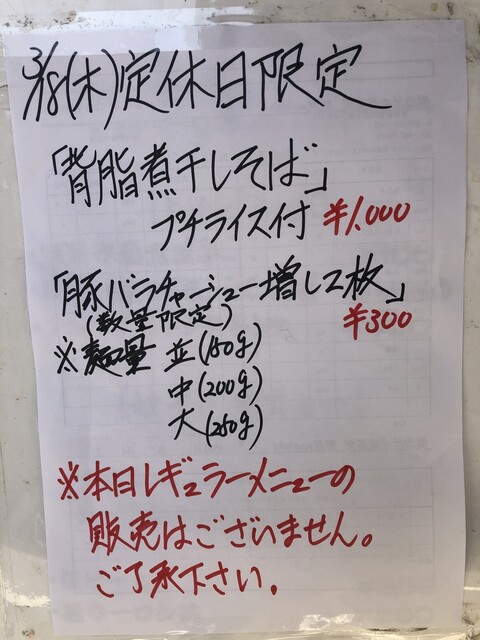 3/18(木)定休日限定
「背脂煮干しそば」
プチライス付 ¥1,000
「豚バラチャーシュー増し2枚」
(数量限定) ¥300
※麺量 並(150g)
中(200g)
大(250g)
※本日レギュラーメニューの
販売はございません。
ご了承下さい。